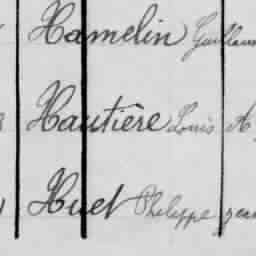 Hamelin Guillaum
Hautière Louis A
Huet Philippe jean